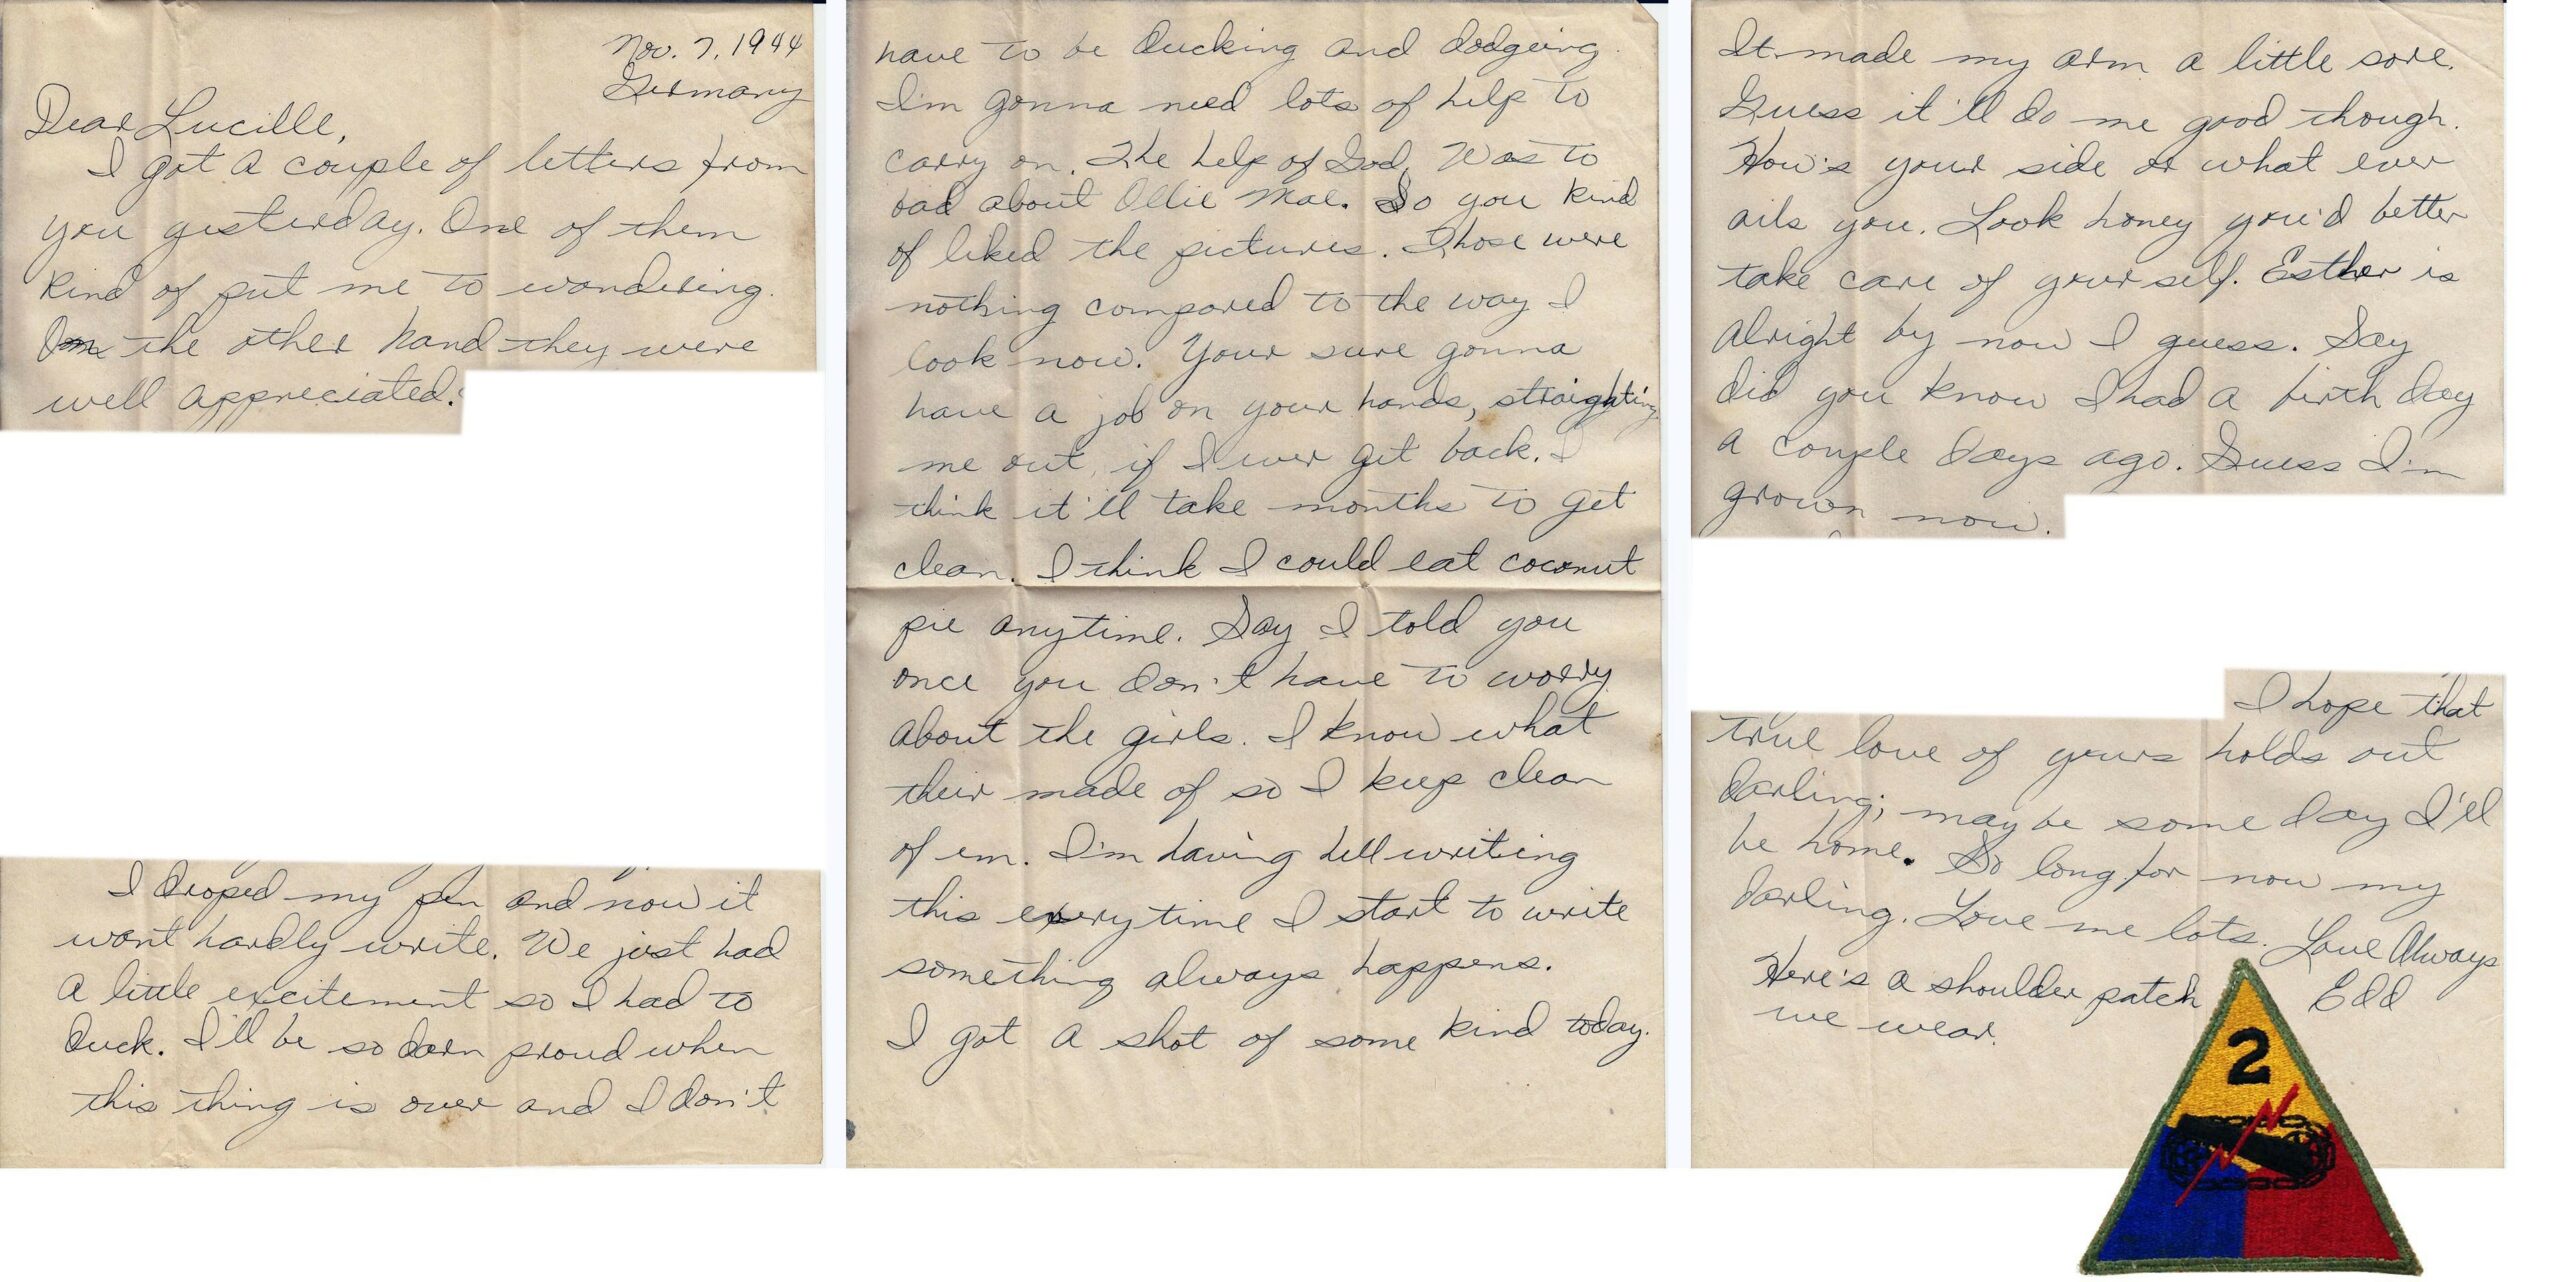 Nov. 7, 1944
Germany
Dear Lucille,
I got a couple of letters from
you yesterday. One of them
kind of put me to wondering.
On the other hand they were
well appreciated.
I droped my pen and now it
wont hardly write. We just had
a little excitement so I had to
duck. I'll be so darn proud when
this thing is over and I don't
have to be ducking and dodgeing.
I'm gonna need lots of help to
carry on. The help of God. Was to
bad about Ollie Mae. So you kind
of liked the pictures. Those were
nothing compared to the way I
look now. Your sure gonna
have a job on your hands, straighting
me out, if I ever get back. I
think it'll take months to get
clean. I think I could eat coconut
pie anytime. Say I told you
once you don't have to worry
about the girls. I know what
their made of so I keep clean
of em. I'm having hell writing
this everytime I start to write
something always happens.
I got a shot of some kind today.
It made my arm a little sore.
Guess it'll do me good though.
How's your side or what ever
ails you. Look honey you'd better
take care of yourself. Esther is
alright by now I guess. Say
did you know I had a birth day
a couple days ago. Guess I'm
grown now.
I hope that
true love of yours holds out
darling; maybe some day I'll
be home. So long for now my
darling. Love me lots. Love Always
Edd
Here's a shoulder patch
we wear.
2